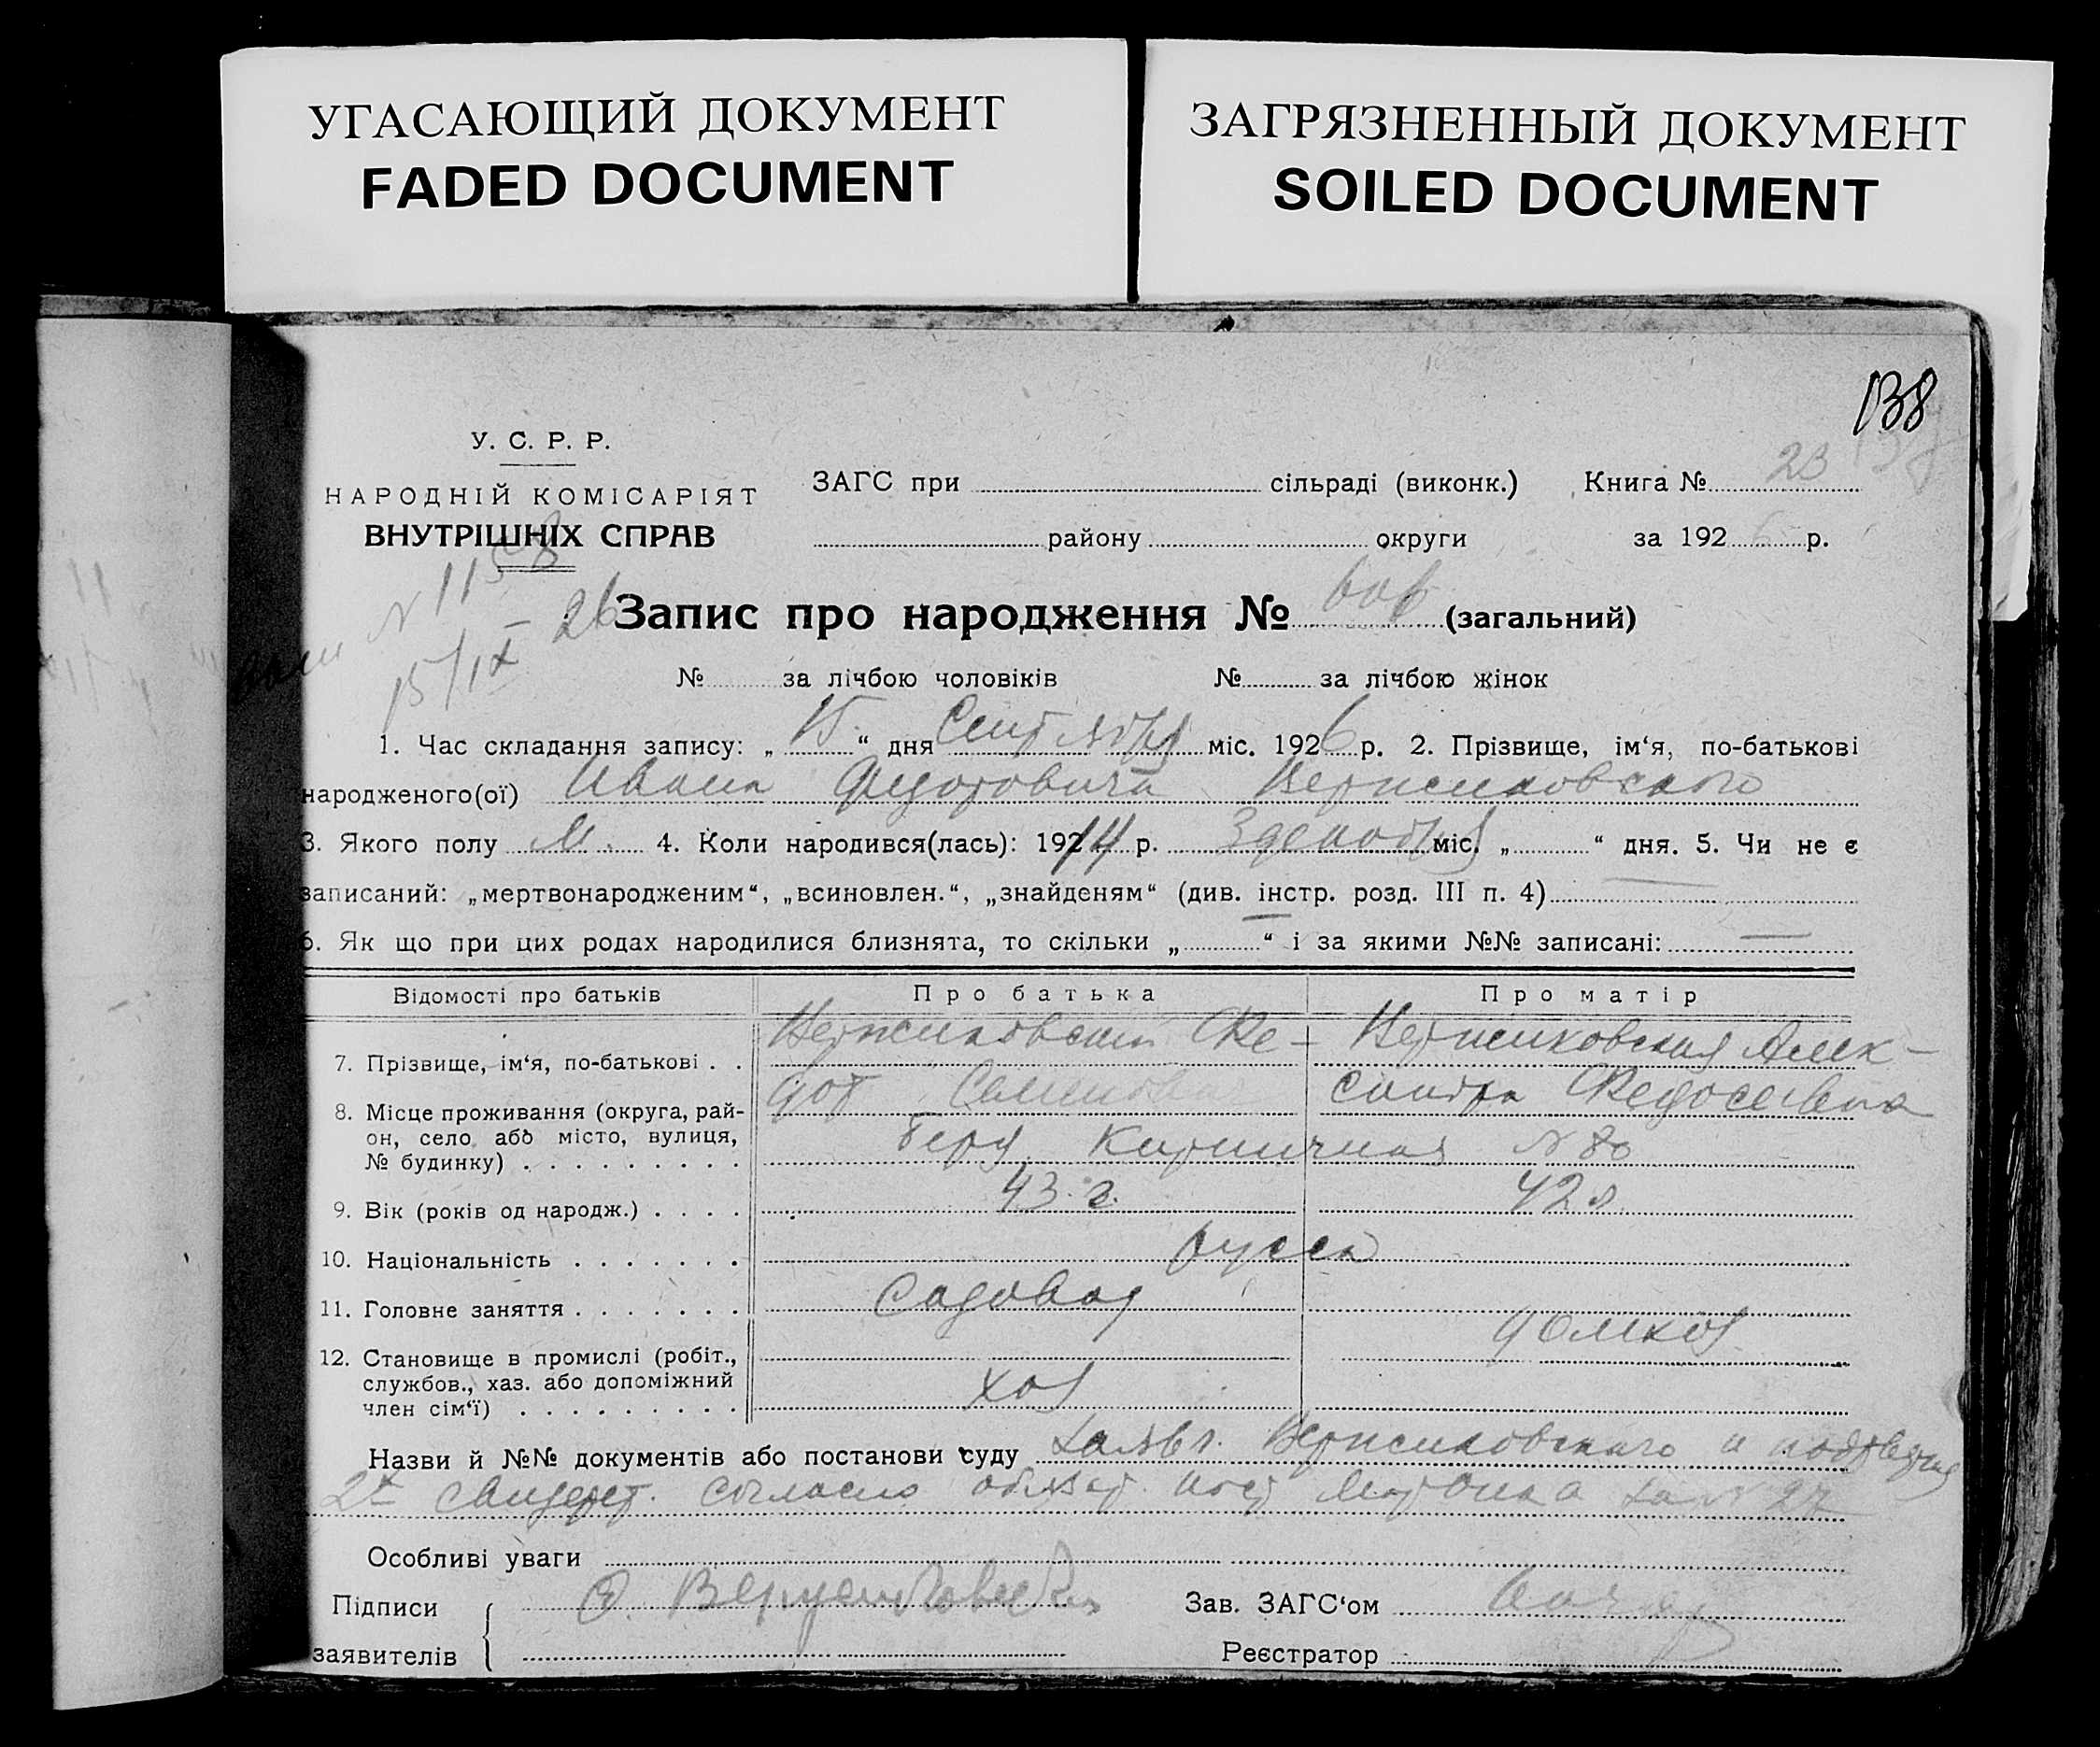 УГАСАЮЩИЙ ДОКУМЕНТ
FADED DOCUMENT
ЗАГРЯЗНЕННЫЙ ДОКУМЕНТ
SOILED DOCUMENT
138
У. С. Р. Р.
НАРОДНІЙ КОМІСАРІЯТ
ВНУТРІШНІХ СПРАВ
ЗАГС при сільраді (виконк.) Книга № 23
району округи за 1926 р.
N 1158
15/IX – 26
Запис про народження № (загальний)
№ за лічбою чоловіків № за лічбою жінок
1. Час складання запису: „15“ дня Сентября міс. 1926 р. 2. Прізвище, ім‘я, по-батькові
народженого(ої) Ивана Федотовича
3. Якого полу М. 4. Коли народився(лась): 19214 р. 3 декабря міс. „ “ дня. 5. Чи не є
записаний: „мертвонародженим“, „всиновлен.“, „знайденям“ (див. інстр. розд. III п. 4) —
6. Як що при цих родах народилися близнята, то скільки „—“ і за якими №№ записані: —
Відомості про батьків Про батька Про матір
7. Прізвище, ім‘я, по-батькові . . Фе- Алек-
дот Семенович сандра Федосеевна
8. Місце проживання (округа, рай-
он, село або місто, вулиця,
№ будинку) . . . . . . . . . Кирпичная N 80
9. Вік (років од народж.) . . . . 43 г. 42 л.
10. Національність . . . . . . . русск
11. Головне заняття . . . . . . . Садовод домхоз
12. Становище в промислі (робіт.,
службов., хаз. або допоміжний
член сім‘ї) . . . . . . . . . хоз
Назви й №№ документів або постанови суду Заявл. и
2х свидет. согласно обязат. пост. за N 27
Особливі уваги
Підписи Зав. ЗАГС‘ом
заявителів Реєстратор